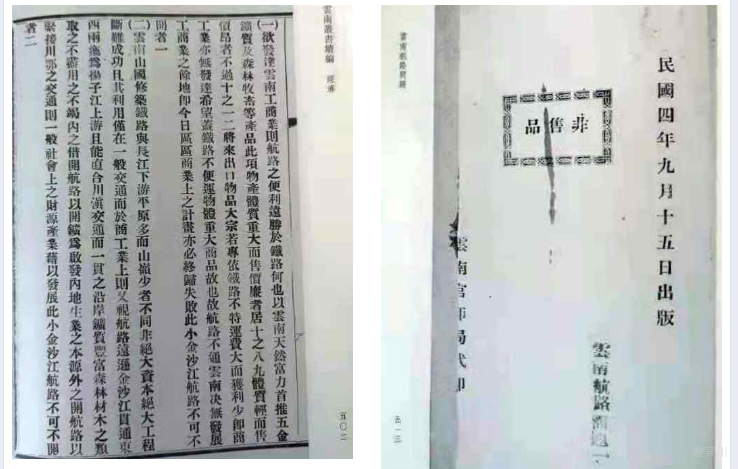 (一)欲發達雲南工商業則航路之便利遠勝於鐵路何也以雲南天然富力首推五金
鑛質及森林牧畜等產品此項物產體質重大而售價廉者居十之八九體質輕而售
價昂者不過十之一二將來出口物品大宗若專依鐵路不特運費大而獲利少卽商
工業亦無發達希望蓋鐵路不便運物體重大商品故也故航路不通雲南决無發展
工商業之餘地卽今日區區商業上之計畫亦必終歸失敗此小金沙江航路不可不
開者一
(二)雲南山國修築鐵路與長江下游平原多而山嶺少者不同非絕大資本絕大工程
斷難成功且其利用僅在一般交通而於商工業上則又視航路遠遜金沙江貫通東
西兩迤爲揚子江上游且能直合川滇交通而一貫之沿岸鑛質豐富森林材木之類
取之不盡用之不竭內之借開航路以開鑛爲啟發內地生業之本源外之開航路以
緊接川鄂之交通則一般社會上之財源產業藉以發展此小金沙江航路不可不開
者二
雲南叢書續編 經濟
五〇二
民國四年九月十五日出版
非售品
雲南官印局代印
雲南航路問題
雲南航路問題
五一三